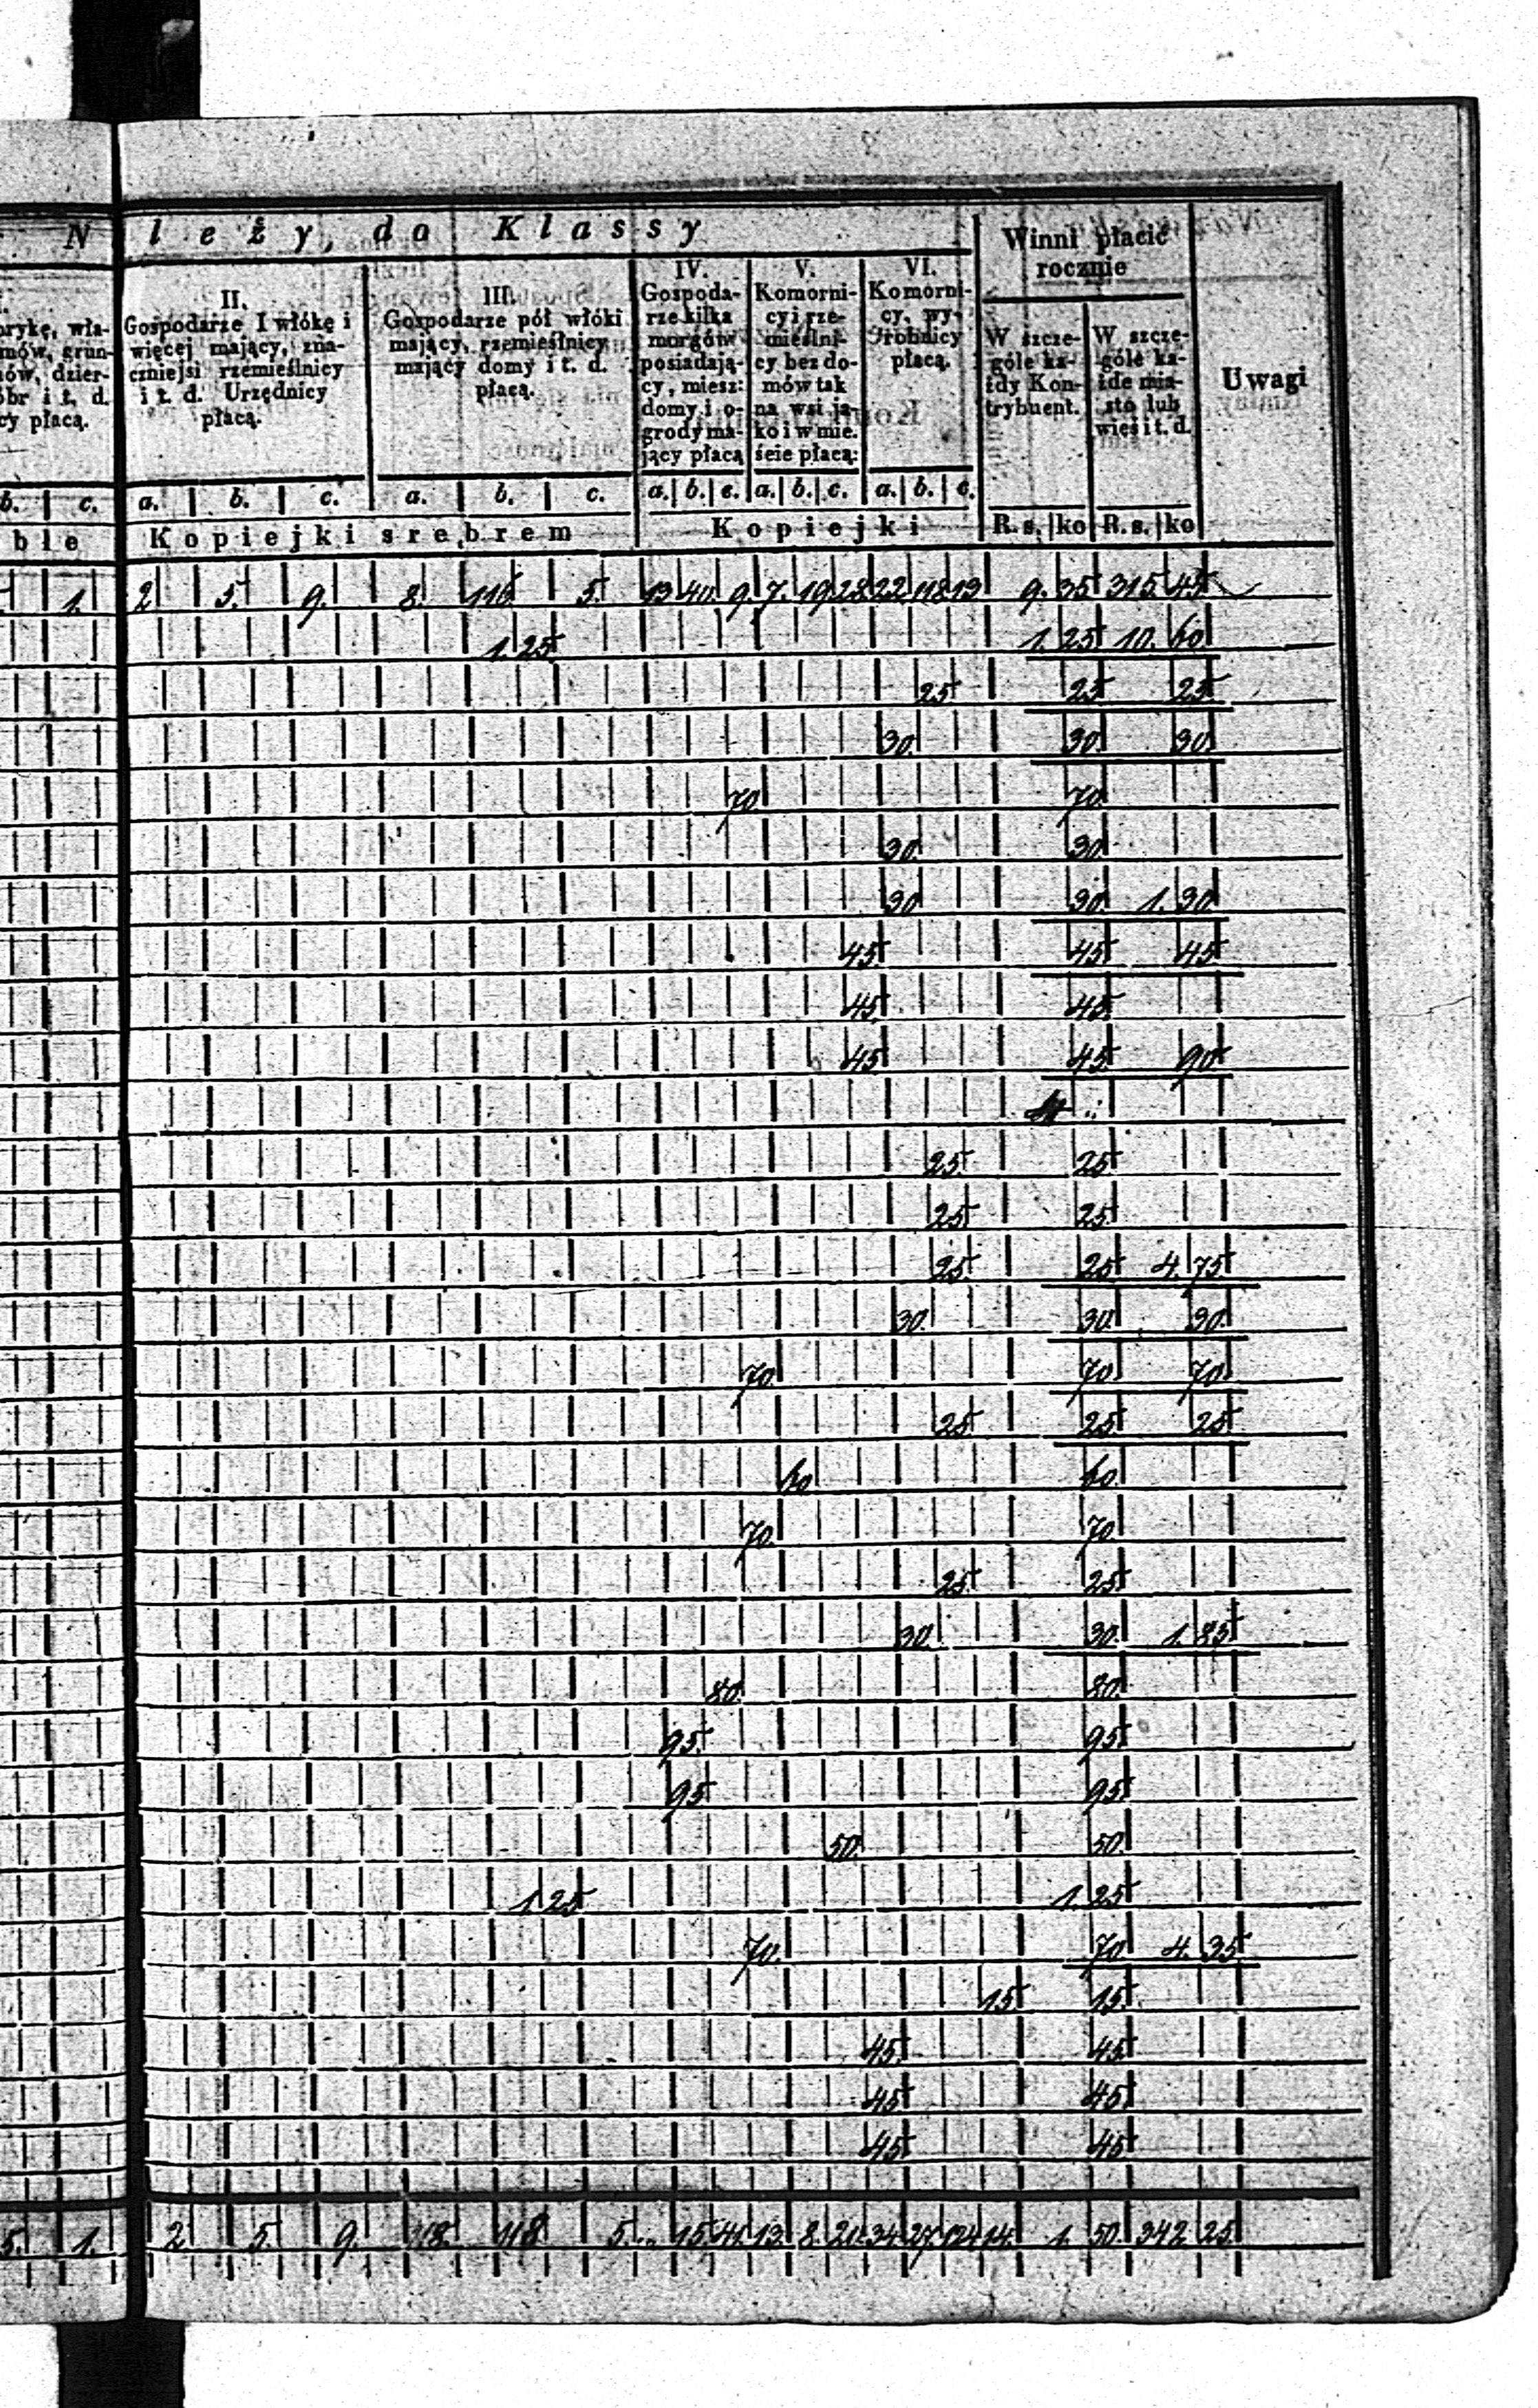 N l e ż y, d o K l a s s y
Winni płacić rocznie
brykę, wła-
mów, grun-
tów, dzier-
óbr i t. d.
cy płacą.
II.
Gospodarze I włókę i
więcej mający, zna-
czniejsi rzemieślnicy
i t. d. Urzędnicy
płacą.
III.
Gospodarze pół włóki
mający, rzemieślnicy
mający domy i t. d.
płacą.
IV.
Gospoda-
rze kilka
morgów
posiadają-
cy, miesz:
domy i o-
grody ma-
jący płacą
V.
Komorni-
cy i rze-
mieślni-
cy bez do-
mów tak
na wsi ja-
ko i w mie.
ście płacą:
VI.
Komorni-
cy, wy-
robnicy
płacą.
W szcze-
góle ka-
żdy Kon-
trybuent.
W szcze-
góle ka-
żde mia-
sto lub
wieś i t. d.
Uwagi
b. c. a. b. c. a. b. c. a. b. c. a. b. c. a. b. c.
ble Kopiejki srebrem Kopiejki R. s. ko R. s. ko
1. 2 5. 9. 8. 116. 5. 13 40. 9. 7. 19. 28. 22. 118. 13 9. 35 315 45
1. 25 1. 25 10. 60
25 25 25
30. 30. 30.
70. 70
30. 30.
30 30. 1. 30
45 45 45
45 45.
45 45 90
25 25
25 25
25 25 4. 75
30. 30. 30.
70 70 70
25 25 25
60 60.
70. 70.
25 25
30. 30. 1. 85
80. 80.
95. 95
95 95
50. 50.
1. 25 1. 25
70. 70 4. 35
15 15
45 45
45 45
45 45
5. 1. 2 5. 9. 118. 5. 15. 41. 13. 8. 21. 34. 27. 124. 14. 1. 50. 342 25.